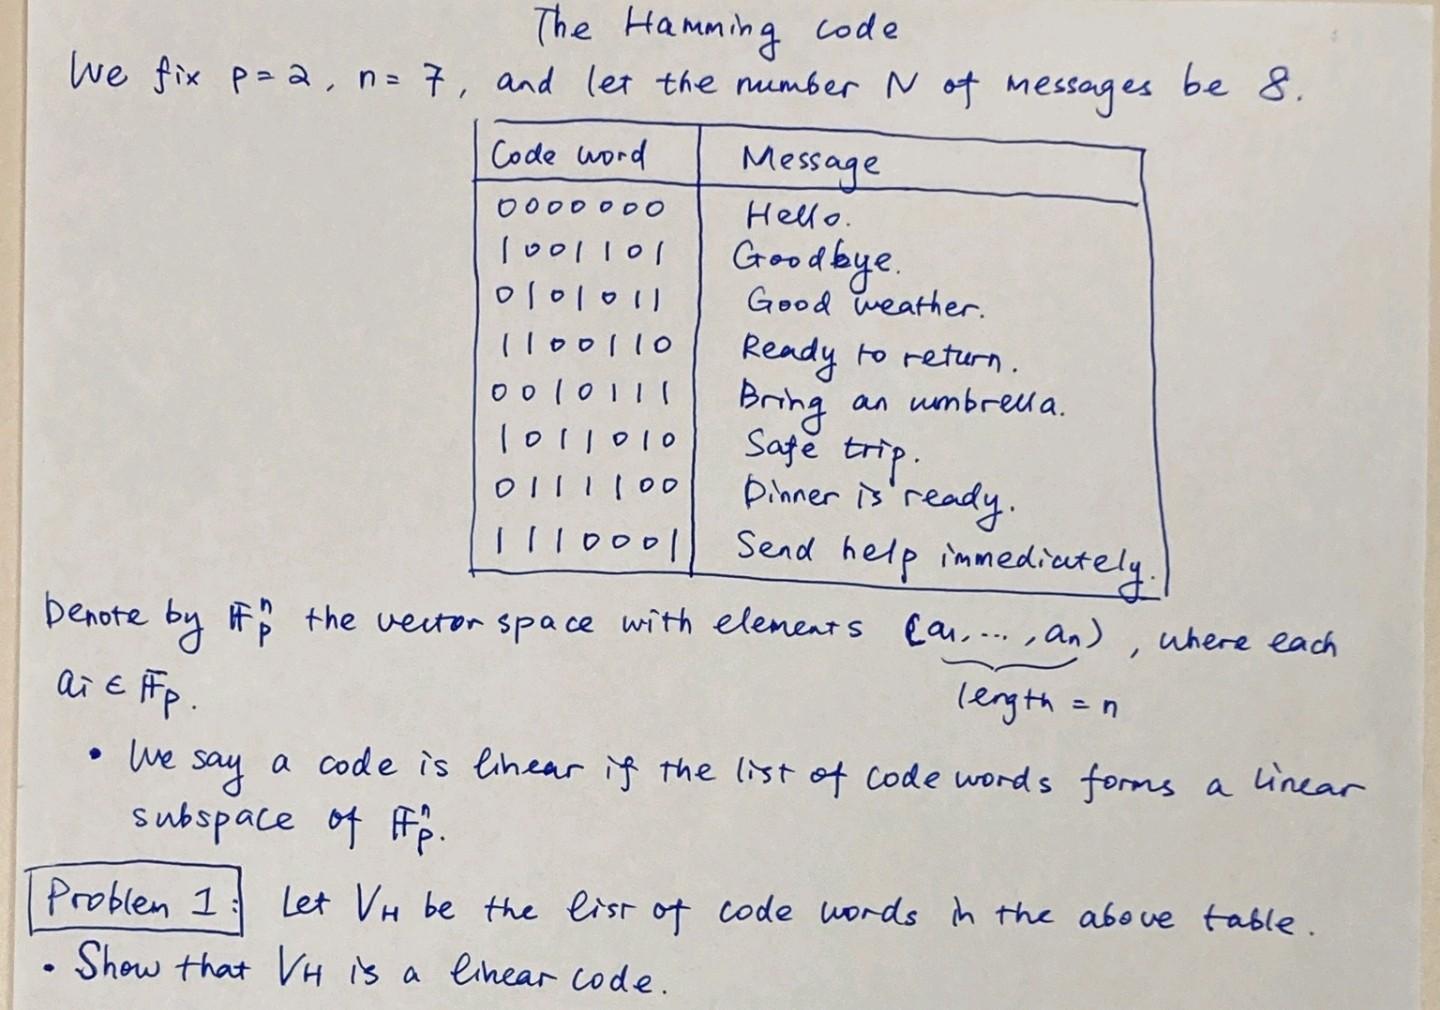 The Hamming code
We fix p=2, n=7, and let the number N of messages be 8.
Code word Message
0000000 Hello.
1001101 Goodbye.
0101011 Good weather.
1100110 Ready to return.
0010111 Bring an umbrella.
1011010 Safe trip.
0111100 Dinner is ready.
1110001 Send help immediately.
Denote by 𝔽ₚⁿ the vector space with elements (a₁, ..., aₙ), where each
aᵢ ∈ 𝔽ₚ.
length = n
• We say a code is linear if the list of code words forms a linear
subspace of 𝔽ₚⁿ.
Problem 1: Let V_H be the list of code words in the above table.
• Show that V_H is a linear code.